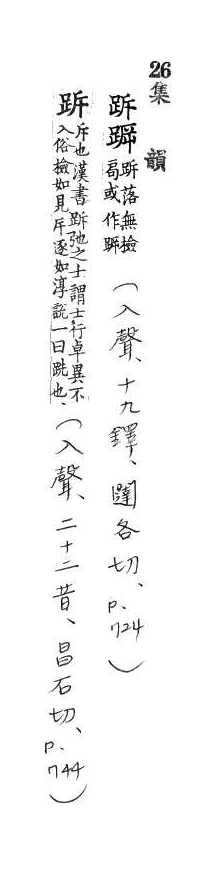 26
集韻
跅䟾 跅落無檢
局或作䟾
（入聲、十九鐸、闥各切、p.724）
跅 斥也漢書跅弛之士謂士行卓異不
入俗檢如見斥逐如淳說一曰跣也、
（入聲、二十二昔、昌石切、p.744）